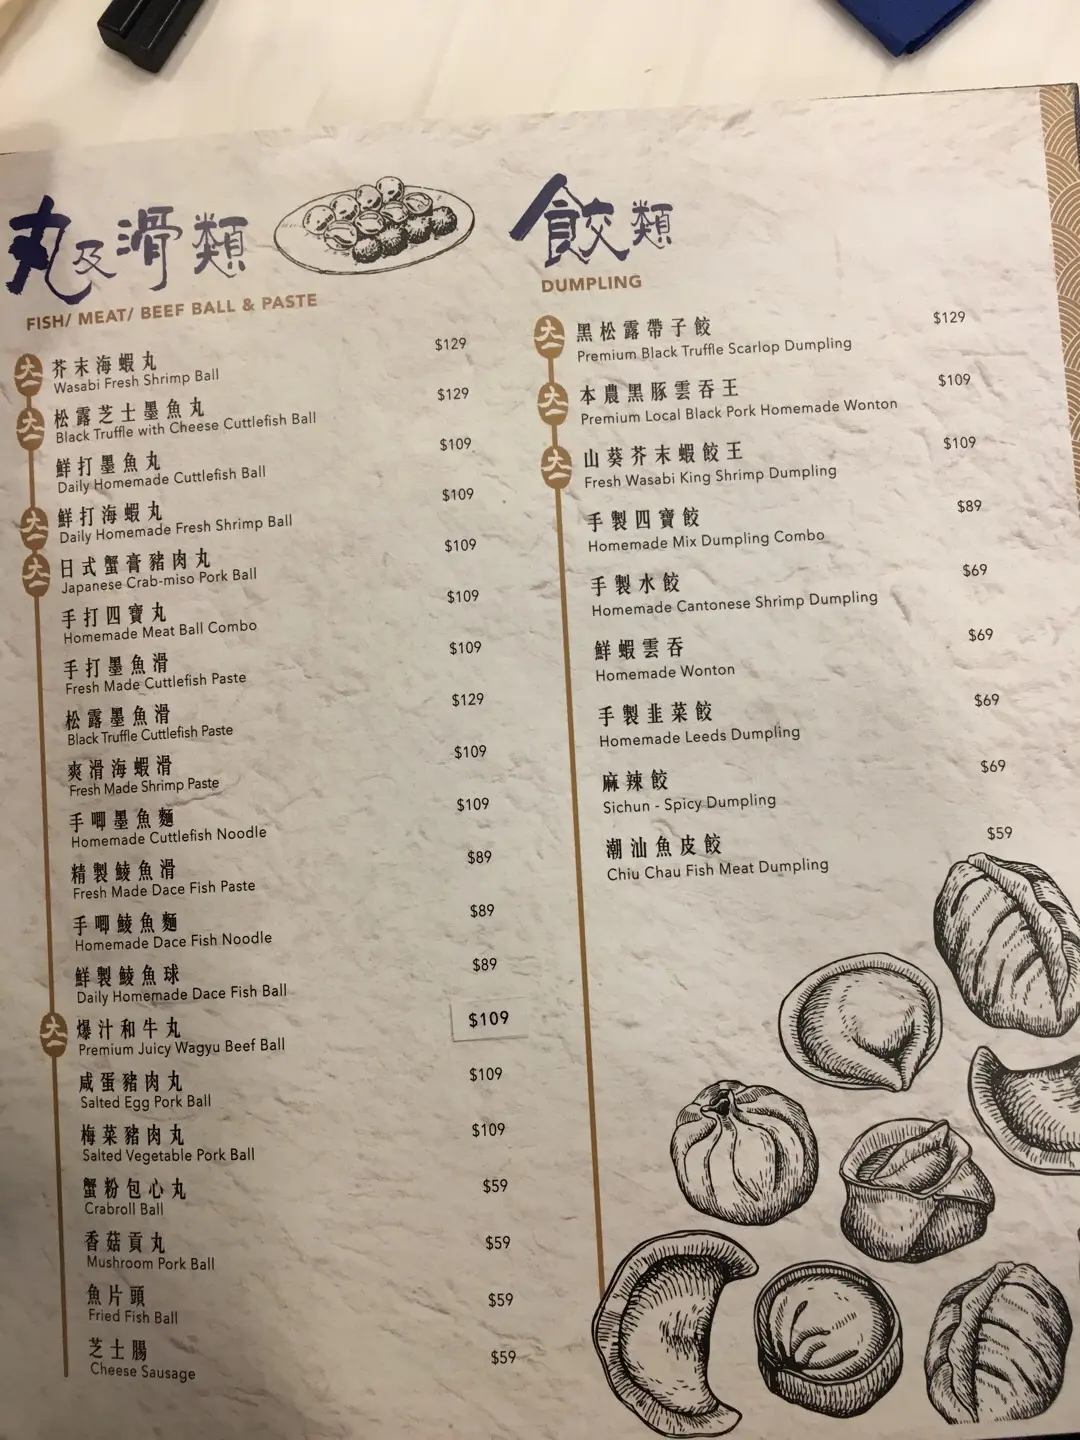 丸及滑類
FISH/ MEAT/ BEEF BALL & PASTE
芥末海蝦丸 $129
Wasabi Fresh Shrimp Ball
松露芝士墨魚丸 $129
Black Truffle with Cheese Cuttlefish Ball
鮮打墨魚丸 $109
Daily Homemade Cuttlefish Ball
鮮打海蝦丸 $109
Daily Homemade Fresh Shrimp Ball
日式蟹膏豬肉丸 $109
Japanese Crab-miso Pork Ball
手打四寶丸 $109
Homemade Meat Ball Combo
手打墨魚滑 $109
Fresh Made Cuttlefish Paste
松露墨魚滑 $129
Black Truffle Cuttlefish Paste
爽滑海蝦滑 $109
Fresh Made Shrimp Paste
手唧墨魚麵 $109
Homemade Cuttlefish Noodle
精製鯪魚滑 $89
Fresh Made Dace Fish Paste
手唧鯪魚麵 $89
Homemade Dace Fish Noodle
鮮製鯪魚球 $89
Daily Homemade Dace Fish Ball
爆汁和牛丸 $109
Premium Juicy Wagyu Beef Ball
咸蛋豬肉丸 $109
Salted Egg Pork Ball
梅菜豬肉丸 $109
Salted Vegetable Pork Ball
蟹粉包心丸 $59
Crabroll Ball
香菇貢丸 $59
Mushroom Pork Ball
魚片頭 $59
Fried Fish Ball
芝士腸 $59
Cheese Sausage
餃類
DUMPLING
黑松露帶子餃 $129
Premium Black Truffle Scarlop Dumpling
本農黑豚雲吞王 $109
Premium Local Black Pork Homemade Wonton
山葵芥末蝦餃王 $109
Fresh Wasabi King Shrimp Dumpling
手製四寶餃 $89
Homemade Mix Dumpling Combo
手製水餃 $69
Homemade Cantonese Shrimp Dumpling
鮮蝦雲吞 $69
Homemade Wonton
手製韭菜餃 $69
Homemade Leeds Dumpling
麻辣餃 $69
Sichun - Spicy Dumpling
潮汕魚皮餃 $59
Chiu Chau Fish Meat Dumpling